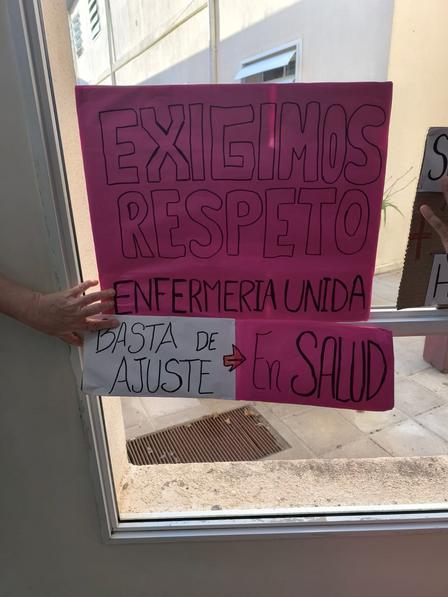 EXIGIMOS
RESPETO
ENFERMERIA UNIDA
BASTA DE
AJUSTE
En SALUD